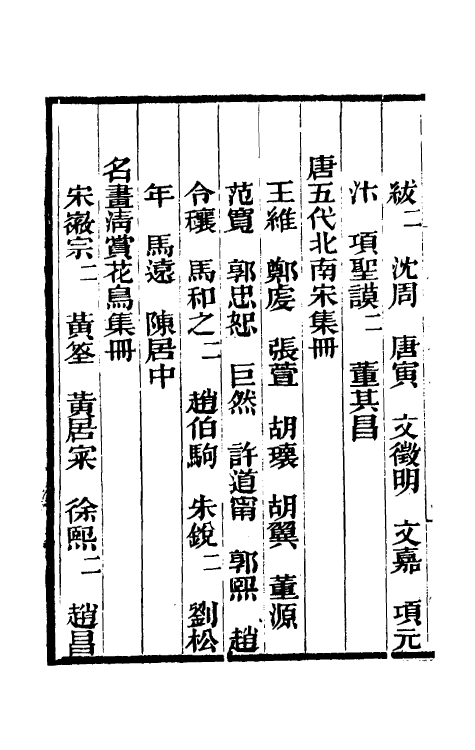 紱二 沈周 唐寅 文徵明 文嘉 項元
汴 項聖謨二 董其昌
唐五代北南宋集冊
王維 鄭虔 張萱 胡瓌 胡翼 董源
范寬 郭忠恕 巨然 許道甯 郭熙 趙
令穰 馬和之二 趙伯駒 朱銳二 劉松
年 馬遠 陳居中
名畫清賞花鳥集冊
宋徽宗二 黃筌 黃居寀 徐熙二 趙昌